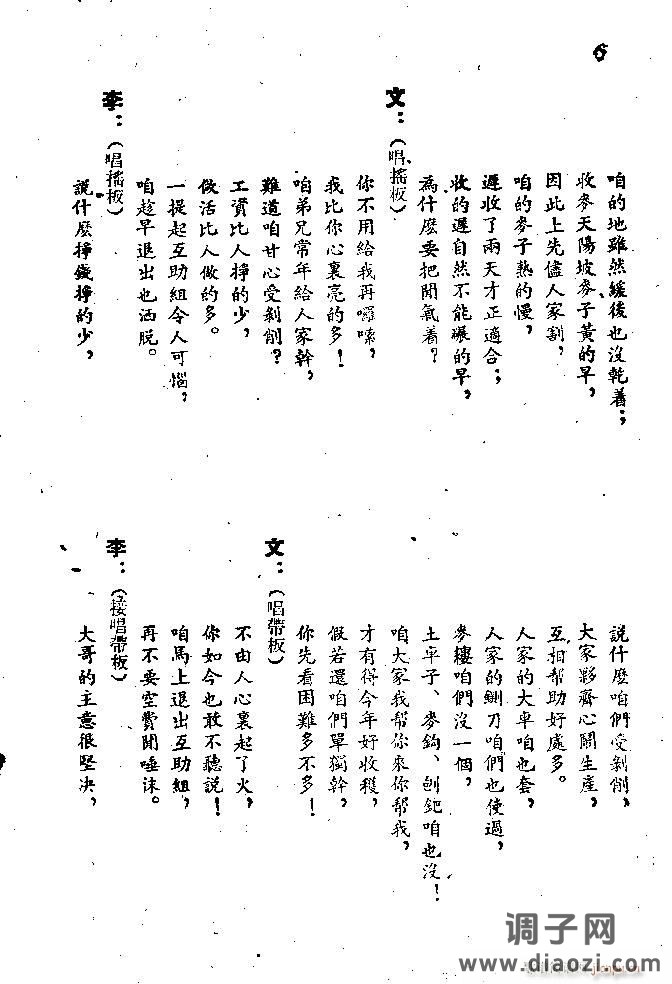 6
咱的地雖然緩後也沒乾着；
收麥天陽坡麥子黃的早，
因此上先儘人家割，
咱的麥子熟的慢，
遲收了兩天才正適合；
收的遲自然不能碾的早，
為什麼要把閒氣着？
文：（唱搖板）
你不用給我再囉嗦，
我比你心裏亮的多！
咱弟兄常年給人家幹，
難道咱甘心受剝削？
工資比人掙的少，
做活比人做的多。
一提起互助組令人可惱，
咱趁早退出也洒脱。
李：（唱搖板）
說什麼掙錢掙的少，
說什麼咱們受剝削，
大家夥齊心鬧生產，
互相幫助好處多。
人家的大車咱也套，
人家的鍘刀咱們也使過，
麥耬咱們沒一個，
土車子、麥鈎、刨鈀咱也沒！
咱大家我幫你來你幫我，
才有得今年好收穫，
假若還咱們單獨幹，
你先看困難多不多！
文：（唱帶板）
不由人心裏起了火，
你如今也敢不聽說！
咱馬上退出互助組，
再不要空費閒唾沫。
李：（接唱帶板）
大哥的主意很堅决，
调子网
www.diaozi.com